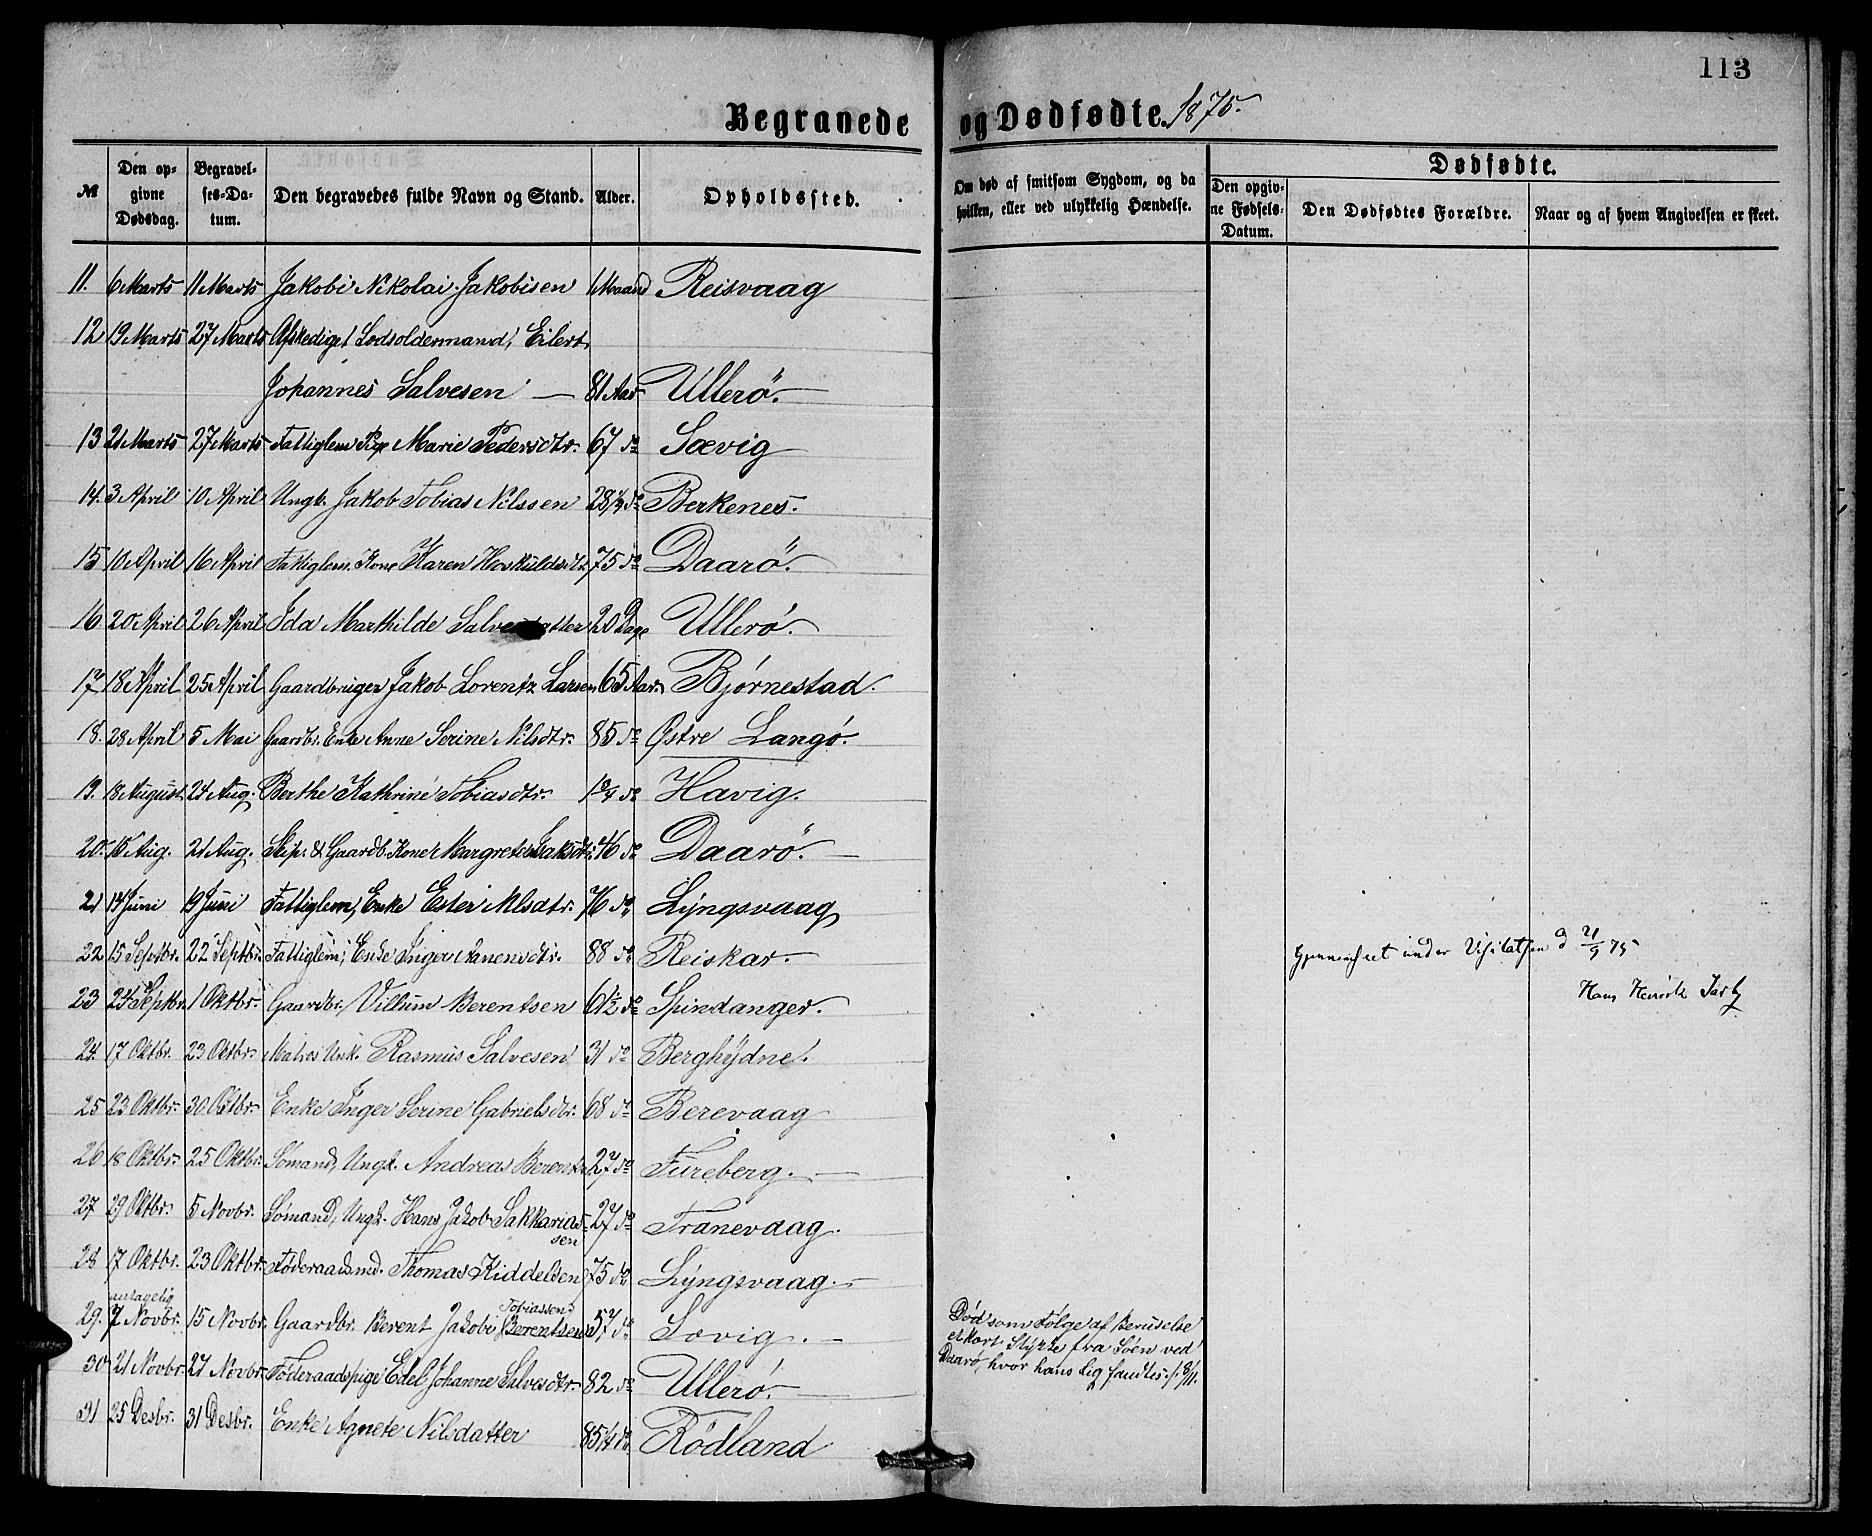 113
Begravede og Dødfødte. 1875.
№ Den opgivne Dødsdag. Begravelses-Datum. Den begravedes fulde Navn og Stand. Alder. Opholdssted. Om død af smitsom Sygdom, og da hvilken, eller ved ulykkelig Hændelse. Dødfødte. Den opgivne Fødsels-Datum. Den Dødfødtes Forældre. Naar og af hvem Angivelsen er skeet.
11. 6 Marts 11 Marts Jakobi Nikolai Jakobisen 1 Maaned Reisvaag
12 19 Marts 27 Marts Afskediget Lodsoldermand, Eilert
Johannes Salvesen — 81 Aar Ullerö.
13 21 Marts 27 Marts Fattiglem Pige Marie Pedersdtr. 67 do Sævig
14. 3 April 10 April Ungk. Jakob Tobias Nilssen 28 do Berkenes.
15 10 April 16 April Fattiglem. Kone Karen 75 do Daarö.
16 20 April 26 April Ida Mathilde 20 Dage Ullerö.
17 18 April 25 April Gaardbruger Jakob Lorentz Larsen 65 Aar Bjørnestad.
18. 28 April 5 Mai Gaardbr. Enke Anne Serine Nilsdtr. 85 do Østre Langö.
19. 18 August 24 Aug. Berthe Kathrine Tobiasdtr. 1 3/4 do Havig.
20. 15 Aug. 21 Aug. Skip. & Gaardb. Kone Margrete 46 do Daarö.
21 14 Juni 19 Juni Fattiglem, Enke Ester Nilsdtr. 76 do Lyngsvaag
22 15 Septbr. 22 Septbr. Fattiglem, Enke Inger 88 do Reiskar.
Gjennemseet under Visitatsen d 21/9 75
23 24 Septbr. 1 Oktbr. Gaardbr. Villum Berentsen 61½ do Spindanger.
Hans Henrik
24. 17 Oktbr. 23 Oktbr. Matros Unk. Rasmus Salvesen 31 do Berghydne.
25 23 Oktbr. 30 Oktbr. Enke Inger Serine Gabrielsdtr. 68 do Berevaag
26 18 Oktbr. 25 Oktbr. Sömand, Ungk. Andreas Berents 27 do Fureberg.
27 29 Oktbr. 5 Novbr. Sömand, Ungk. Hans Jakob Sakkariassen 27 do Tranevaag
28 17 Oktbr. 23 Oktbr. Føderaadsmd. Thomas Kiddelsen 75 do Lyngsvaag.
29. antagelig 7 Novbr. 15 Novbr. Gaardbr. Berent Jakobi Tobiassen Berentsen 57 do Sovig.
Død som Følge af Beruselse
styrte fra Søen ved
Daarö, hvor hans Lig fandtes 8/11.
30 21 Novbr. 27 Novbr. Føderaadspige Edel Johanne Salvesdtr. 82 do Ullerö.
31 25 Desbr. 31 Desbr. Enke Agnete Nilsdatter 85 1/4 do Rödland